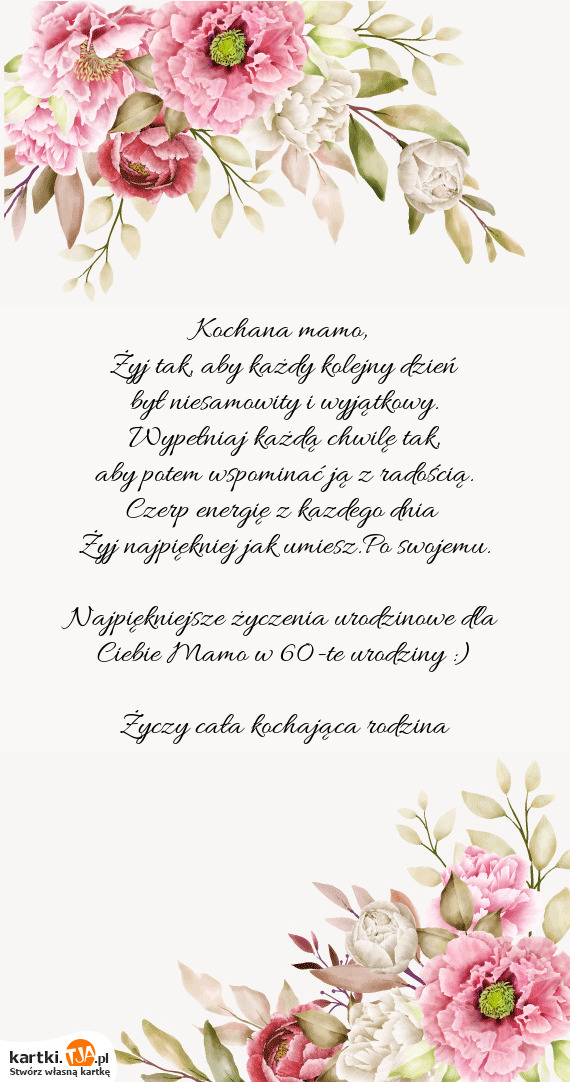 Kochana mamo,
Żyj tak, aby każdy kolejny dzień
był niesamowity i wyjątkowy.
Wypełniaj każdą chwilę tak,
aby potem wspominać ją z radością.
Czerp energię z kazdego dnia
Żyj najpiękniej jak umiesz.Po swojemu.
Najpiękniejsze życzenia urodzinowe dla
Ciebie Mamo w 60-te urodziny :)
Życzy cała kochająca rodzina
kartki.TJA.pl
Stwórz własną kartkę